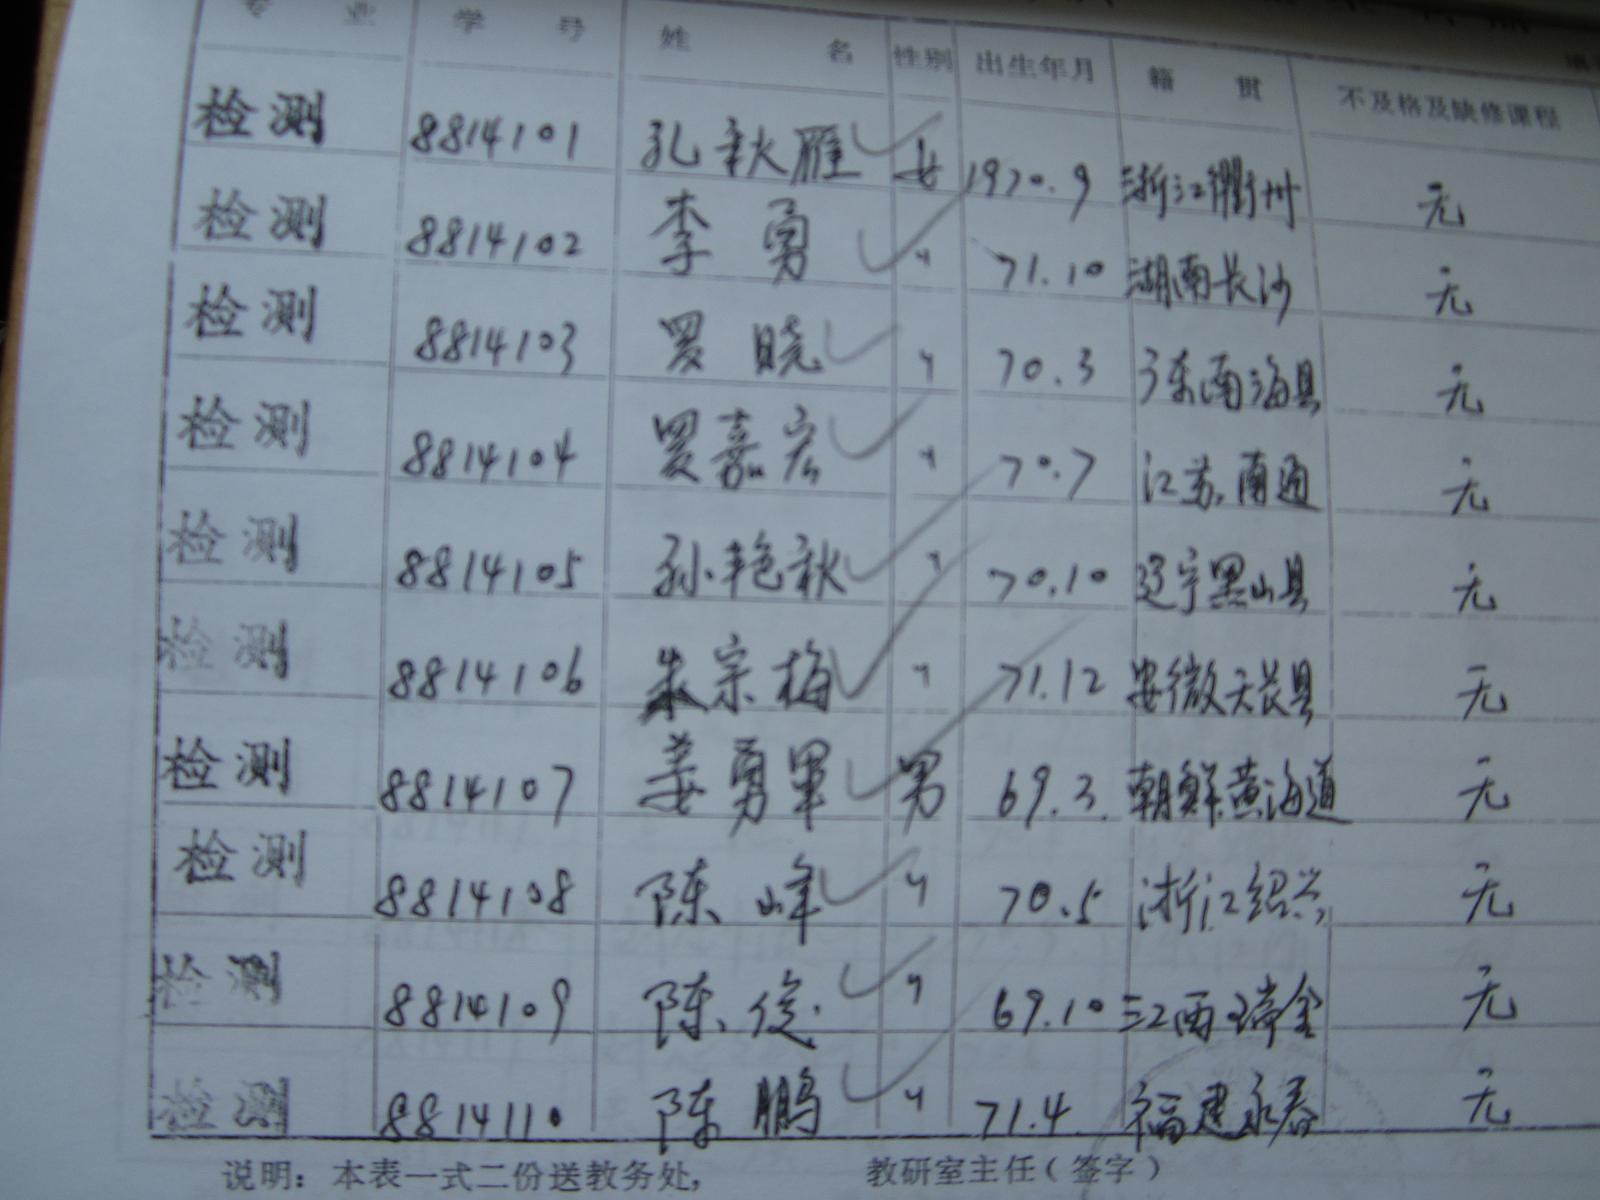 专 业 学 号 姓 名 性别 出生年月 籍 贯 不及格及缺修课程
检测 8814101 孔秋雁 女 1970.9 浙江衢州 无
检测 8814102 李勇 〃 71.10 湖南长沙 无
检测 8814103 罗晓 〃 70.3 广东南海县 无
检测 8814104 罗嘉宏 〃 70.7 江苏南通 无
检测 8814105 孙艳秋 〃 70.10 辽宁黑山县 无
检测 8814106 朱宗梅 〃 71.12 安徽天长县 无
检测 8814107 姜勇军 男 69.3. 朝鲜黄海道 无
检测 8814108 陈峰 〃 70.5 浙江绍兴 无
检测 8814109 陈俊 〃 69.10 江西瑞金 无
检测 8814110 陈鹏 〃 71.4 福建永春 无
说明：本表一式二份送教务处, 教研室主任（签字）